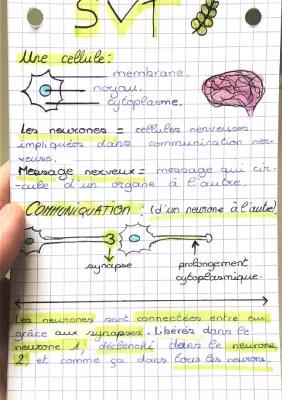 SVT
Une cellule :
membrane.
noyau.
cytoplasme.
Les neurones = cellules nerveuses
impliqués dans communication ner-
veuse.
Message nerveux = message qui cir-
cule d'un organe à l'autre.
COMMUNIQUATION : (d'un neurone à l'autre).
3
synapse.
prolongement
cytoplasmique.
Les neurones sont connectées entre eux
grâce aux synapses. Libérés dans le
neurone 1, déclenché dans le neurone
2, et comme ça dans tous les neurone.